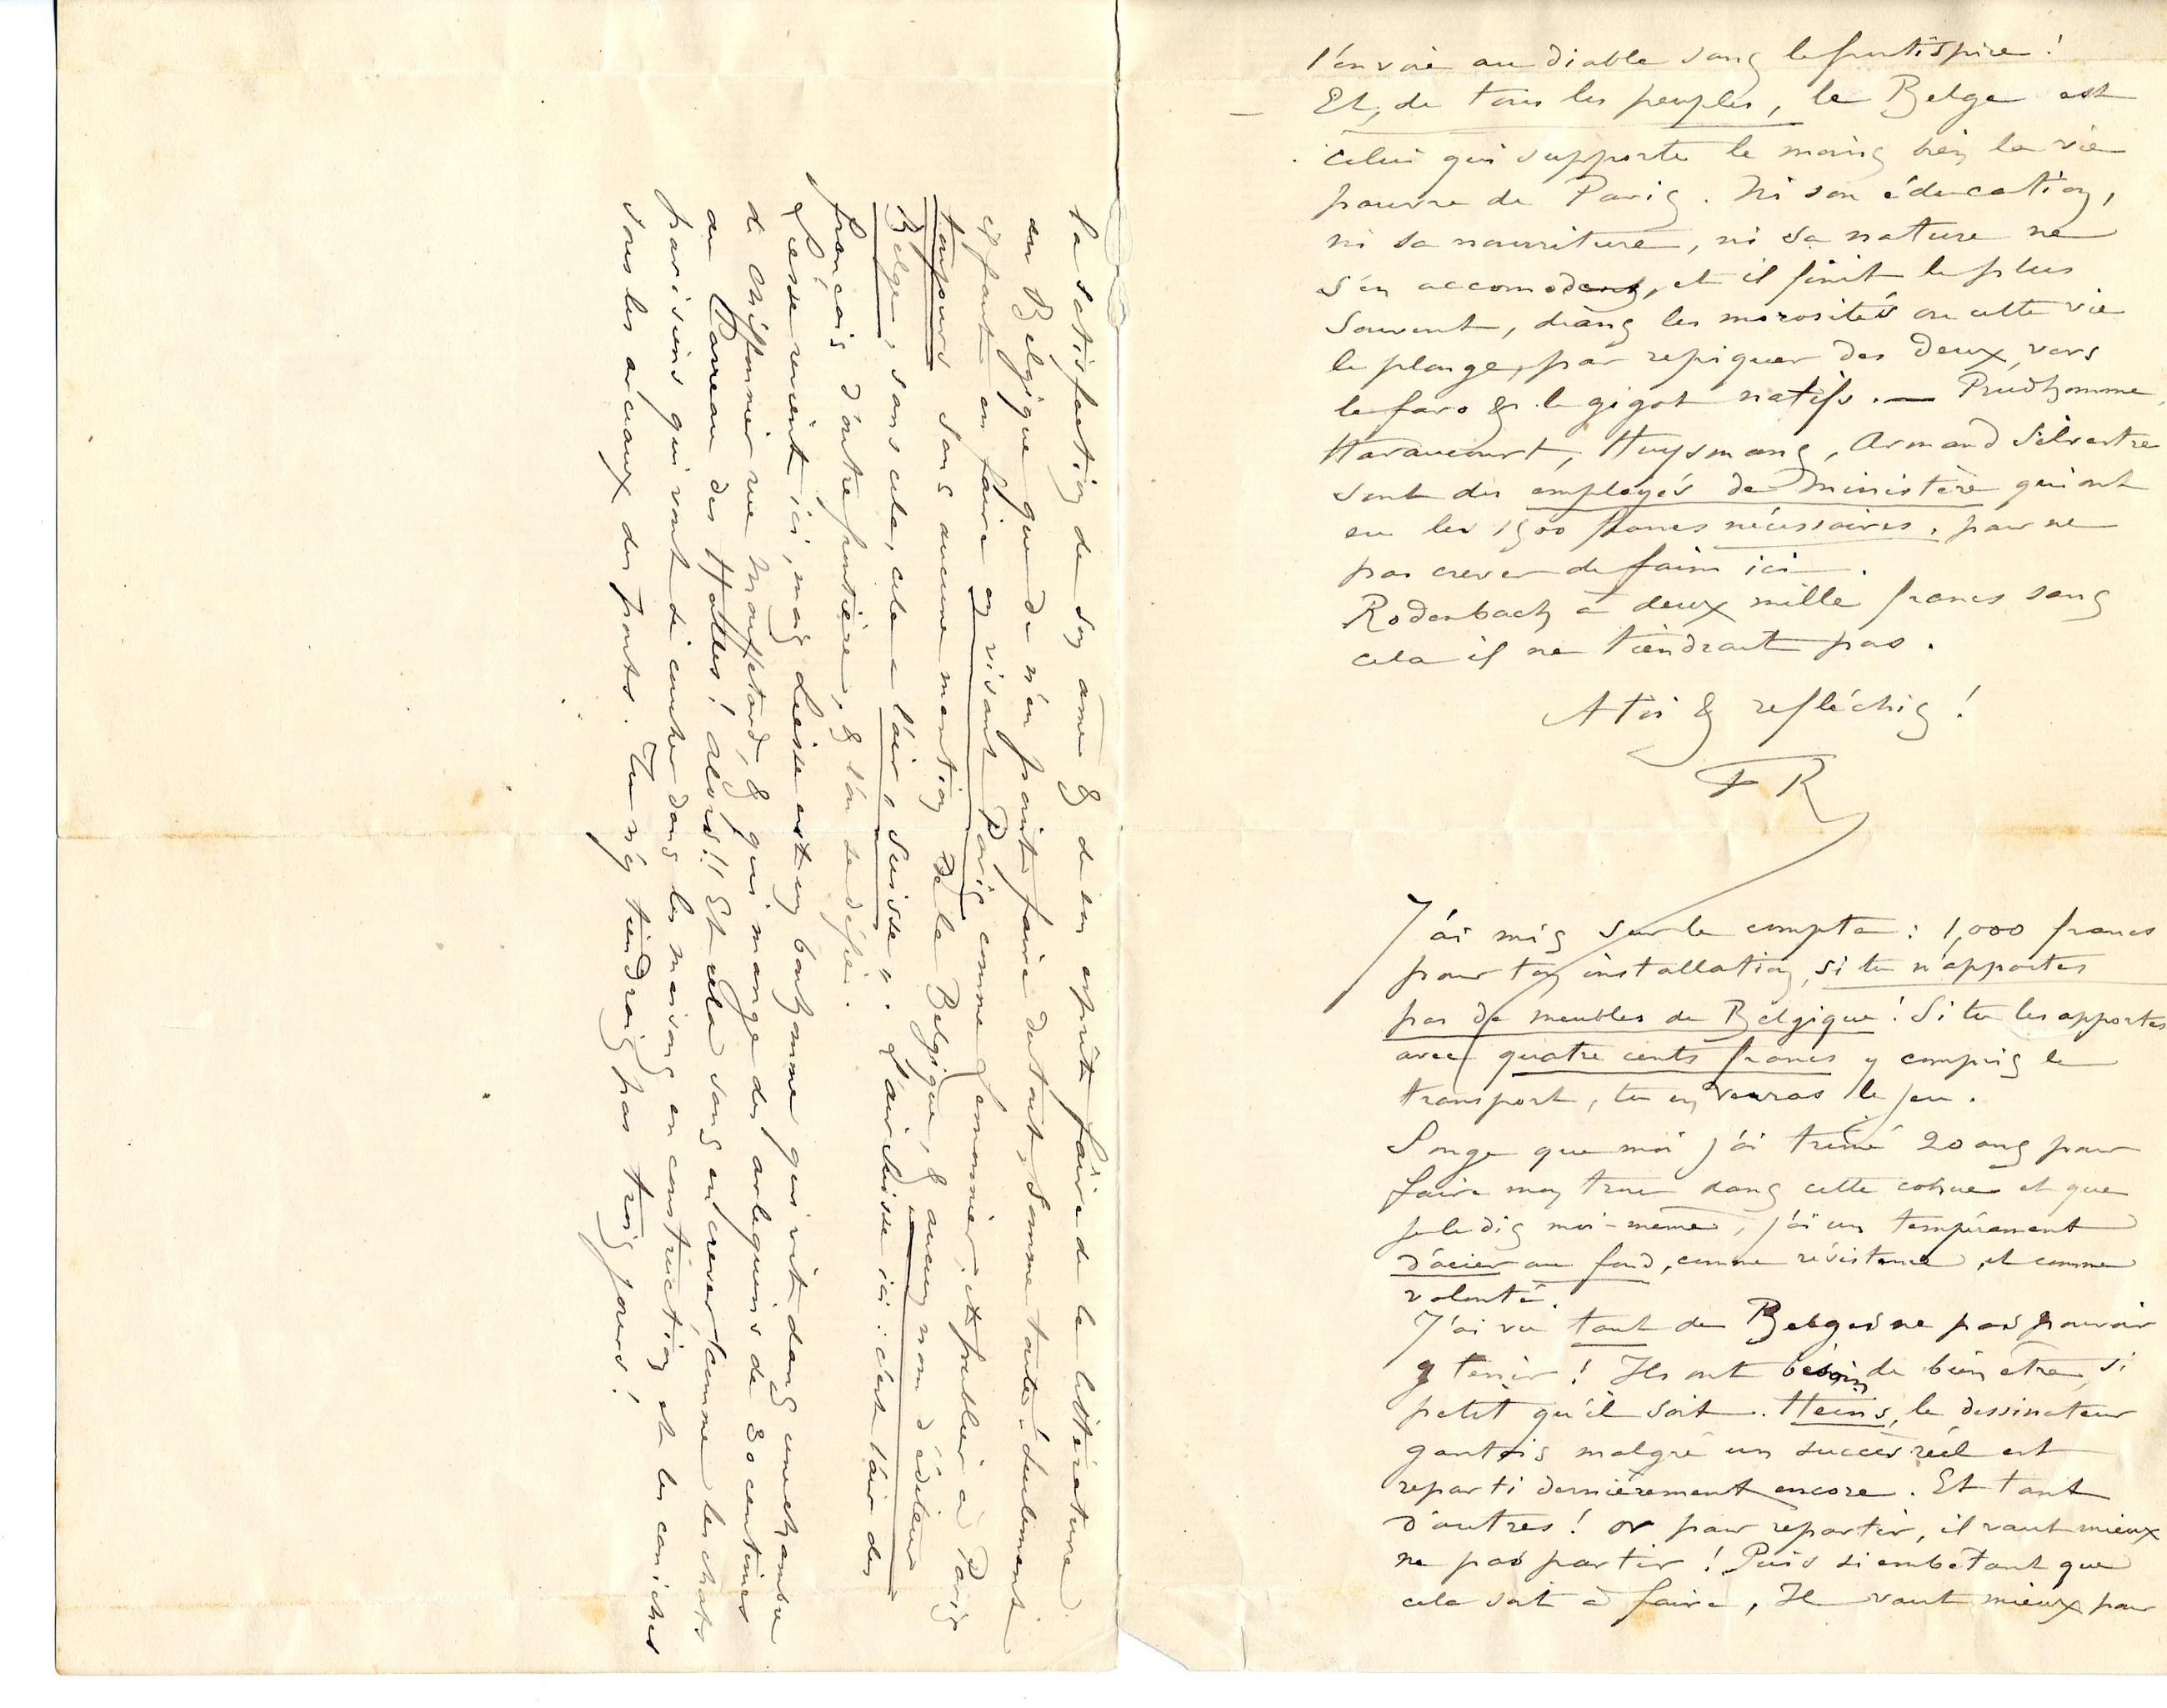 l'envoie au diable sans le frontispice !
Et, de tous les peuples, le Belge est
celui qui supporte le moins bien la vie
pauvre de Paris. Ni son éducation,
ni sa nourriture, ni sa nature ne
s'en accomodent, et il finit le plus
souvent, dans les morosités ou cette vie
le plonge, par repiquer des deux, vers
le faro & le gigot natifs. — Prudhomme,
Haraucourt, Huysmans, Armand Silvestre
sont des employés de Ministère qui ont
eu les 1500 francs nécessaires, pour ne
pas crever de faim ici.
Rodenbach a deux mille francs sans
cela il ne tiendrait pas.
A toi & refléchis !
FR
J'ai mis sur le compte : 1,000 francs
pour ton installation, si tu n'apportes
pas de meubles de Belgique ! Si tu les apportes
avec quatre cents francs y compris le
transport, tu en verras le jeu.
Songe que moi j'ai trimé 20 ans pour
faire mon trou dans cette cohue et que
je le dis moi-même, j'ai un tempérament
d'acier au fond, comme résistance, et comme
volonté.
J'ai vu tant de Belges ne pas pouvoir
y tenir ! Ils ont besoin de bien être, si
petit qu'il soit. Heins, le dessinateur
gantois malgré un succès réel est
reparti dernièrement encore. Et tant
d'autres ! or pour repartir, il vaut mieux
ne pas partir ! Puis si embêtant que
cela soit à faire, Il vaut mieux pour
la satisfaction de son âme & de son esprit faire de la littérature
en Belgique que de n'en point faire du tout, somme toute. Seulement
il faut en faire en visant Paris comme Lemonnier, et publier à Paris
toujours sans aucune mention de la Belgique, & aucun nom d'éditeur
Belge, sans cela, cela a l'air "Suisse". L'air Suisse ici : c'est l'air des
français d'autre frontière, & l'on se défie.
qui vit dans une chambre
de chiffonnier rue Mouffetard, & qui mange des arlequins de 30 centimes
au Carreau des Halles ! alors !! Et cela sans en crever comme les chats
parisiens qui vont se coucher dans les maisons en construction et les caniches
sous les arceaux des ponts. Tu n'y tiendrais pas trois jours !